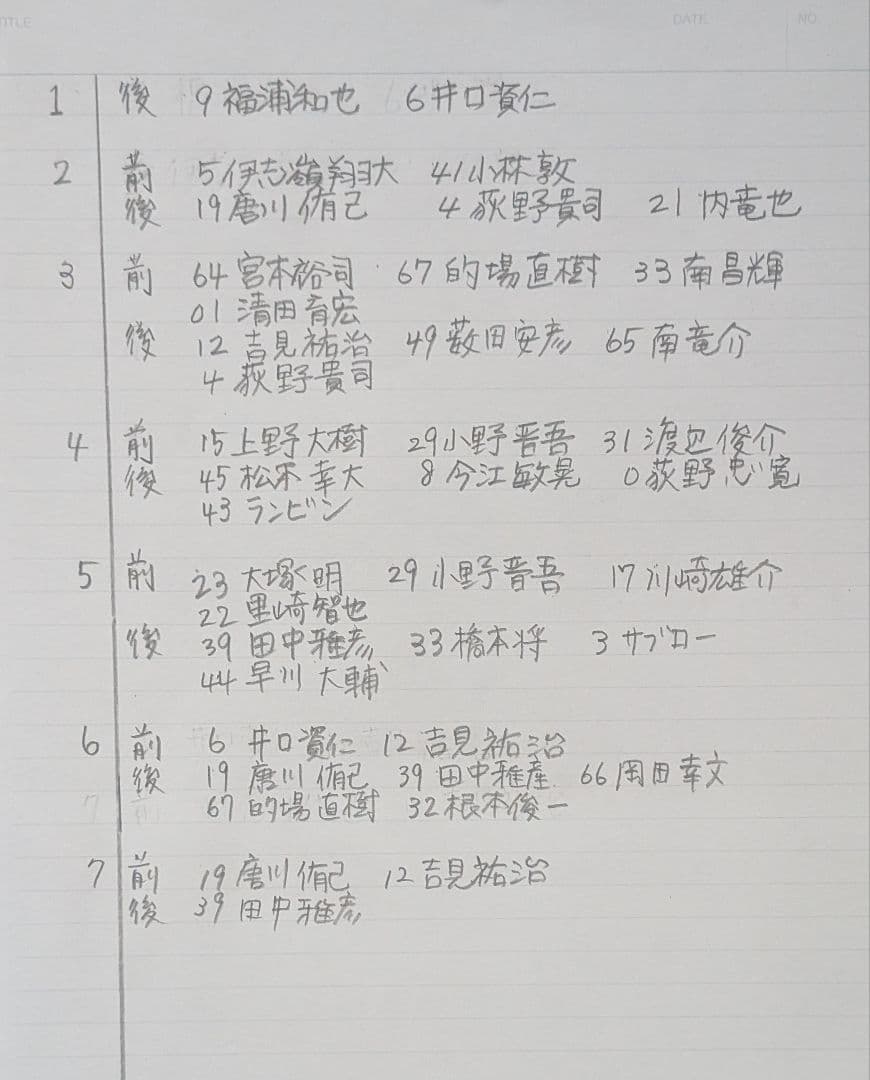 TITLE DATE NO.
1 後 9 福浦和也 6 井口資仁
2 前 5 伊志嶺翔大 41 小林敦
後 19 唐川侑己 4 荻野貴司 21 内竜也
3 前 64 宮本裕司 67 的場直樹 33 南昌輝
01 清田育宏
後 12 吉見祐治 49 薮田安彦 65 南竜介
4 荻野貴司
4 前 15 上野大樹 29 小野晋吾 31 渡辺俊介
後 45 松本幸大 8 今江敏晃 0 荻野忠寛
43 ランビン
5 前 23 大塚明 29 小野晋吾 17 川崎雄介
22 里崎智也
後 39 田中雅彦 33 橋本将 3 サブロー
44 早川大輔
6 前 6 井口資仁 12 吉見祐治
後 19 唐川侑己 39 田中雅彦 66 岡田幸文
67 的場直樹 32 根本俊一
7 前 19 唐川侑己 12 吉見祐治
後 39 田中雅彦